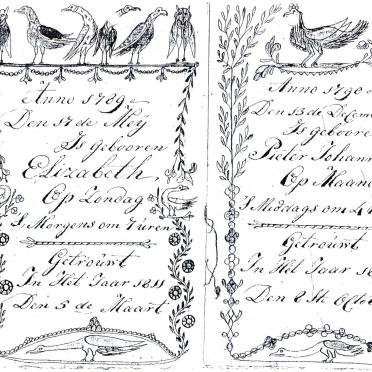 Anno 1789
Den 17 de Meÿ
Is gebooren
Elizabeth,
Op Zondag
S Morgens om 7 uren
Getroŭwt
In Hĕt Jaar 1811
Den 5 de Maart
Anno 1790
Den 13 de Decem
Is geboore
Pieter Johann
Op Maand
S Middags om 4
Getroŭw
In Hĕt Jaar 18
Den 8 Ste Octo